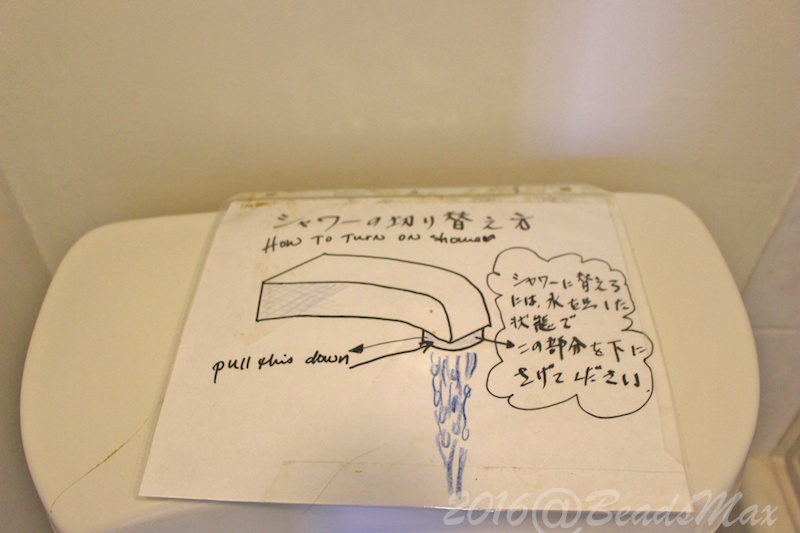 シャワーの切り替え方
HOW TO TURN ON shower
シャワーに替える
には、水を出した
状態で
この部分を下に
さげてください
pull this down
2016@BeadsMax